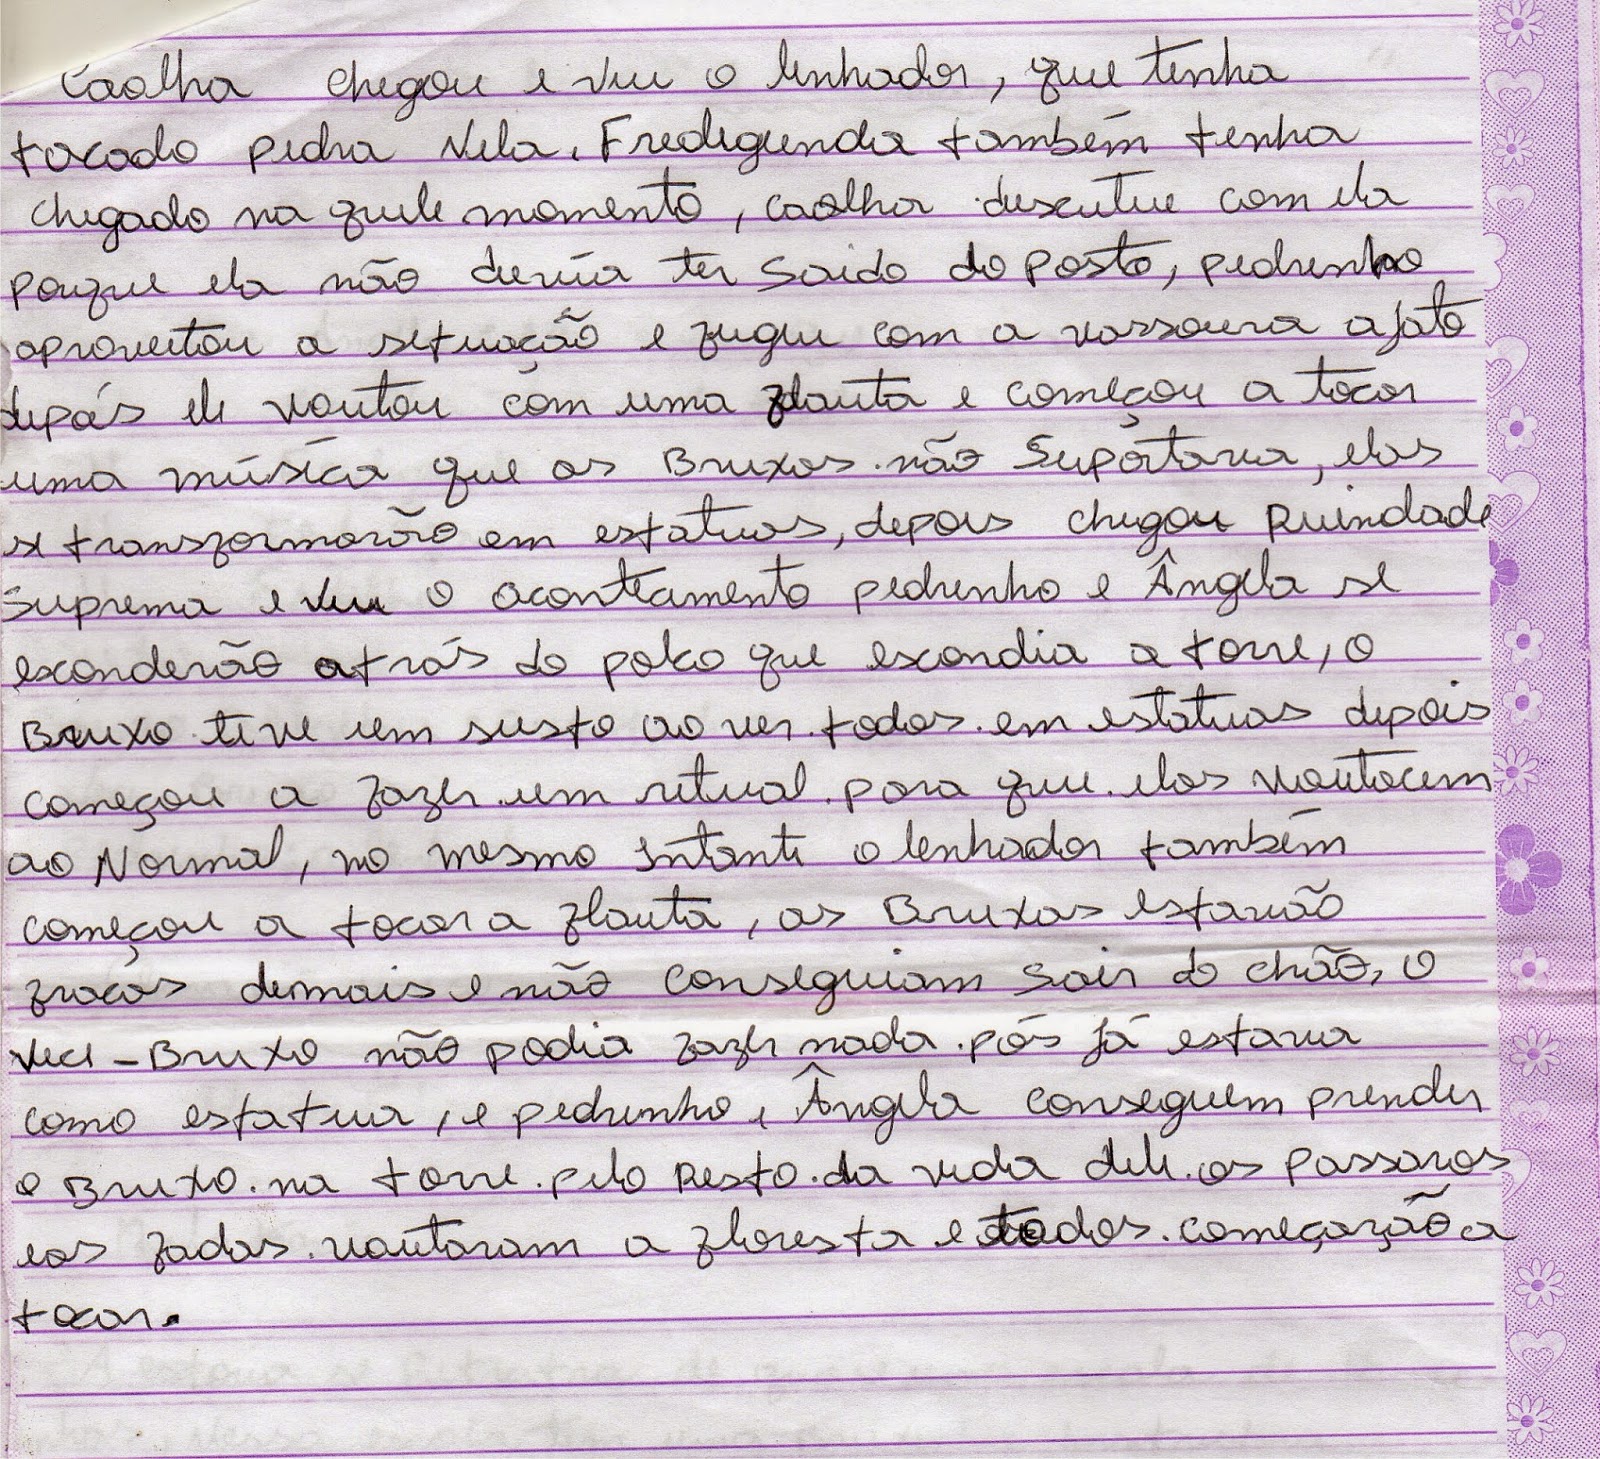 Caolha chegou e viu o lenhador, que tinha
tacado pedra Nela. Fredegunda também tinha
chegado na quele momento, caolha discutiu com ela
porque ela não devia ter Saido do posto, pedrinho
aproveitou a situação e fugiu com a vassoura a jato
depóis ele voutou com uma flauta e começou a tocar
uma música que as Bruxas não Suportava, elas
se transformarão em estatuas, depois chegou Ruindade
Suprema e viu o aconteamento pedrinho e Ângela se
esconderão atrás do palco que escondia a torre, o
Bruxo teve um susto ao ver todos em estatuas depois
começou a fazer um ritual para que elas voutacem
ao Normal, no mesmo Intante o lenhador também
começou a tocar a flauta, as Bruxas estavão
fracas demais e não conseguiam Sair do chão, o
Vice-Bruxo não podia fazer nada pós já estava
como estatua, e pedrinho e Ângela conseguem prender
o Bruxo na torre pelo Resto da vida dele os passaros
e as fadas voutaram a floresta e todos começarão a
tocar.